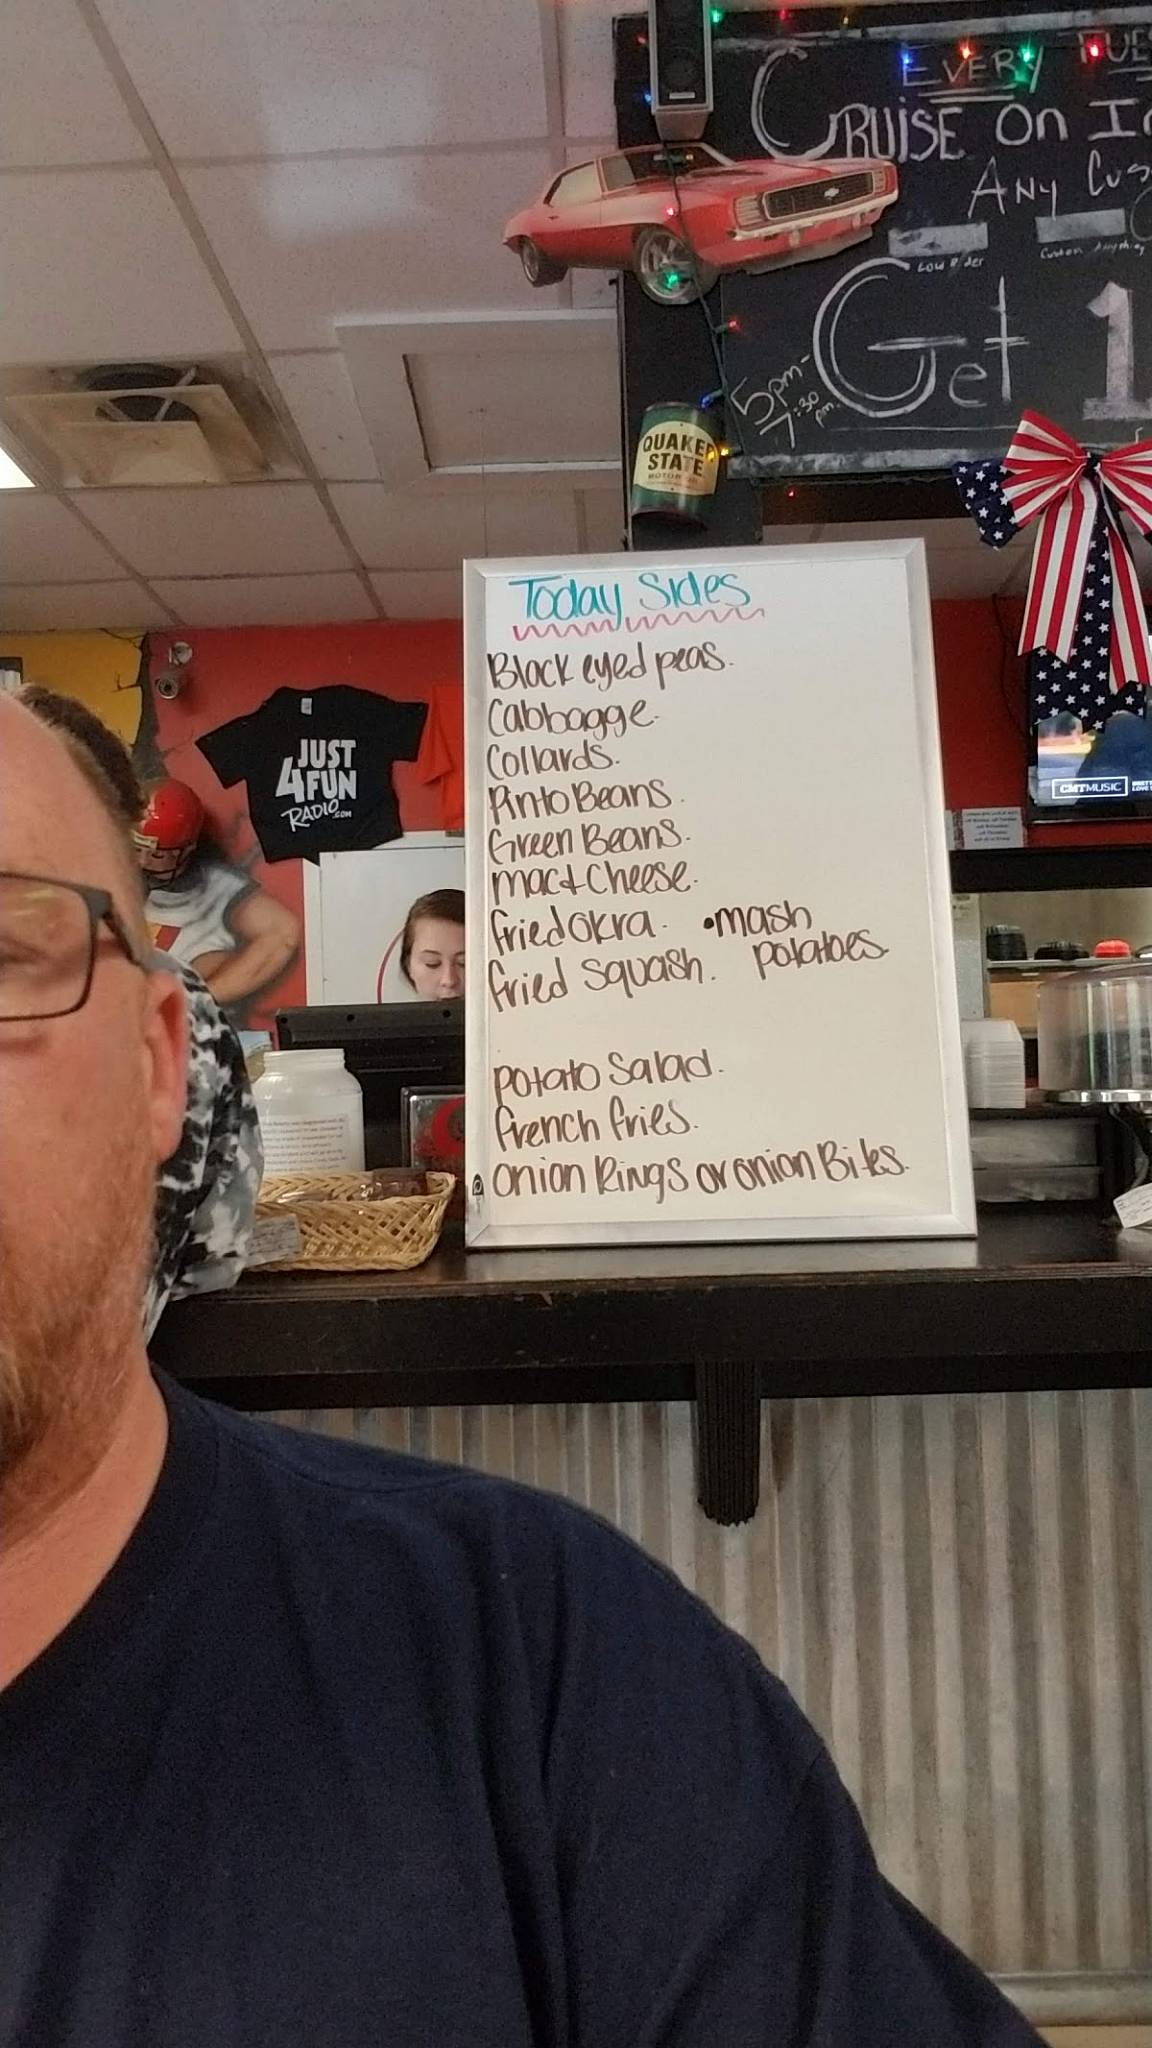 EVERY TUES
CRUISE ON In
ANY Cus
Low Rider
Custom Anything
Get 1
5pm-
7:30
pm.
QUAKER
STATE
MOTOR OIL
Today Sides
Black eyed peas.
Cabbagge.
Collards.
Pinto Beans.
Green Beans.
Mac & Cheese.
fried Okra. •mash
potatoes.
fried squash.
potato Salad.
french fries.
onion Rings or onion Bites.
JUST
4FUN
RADIO.COM
CMTMUSIC